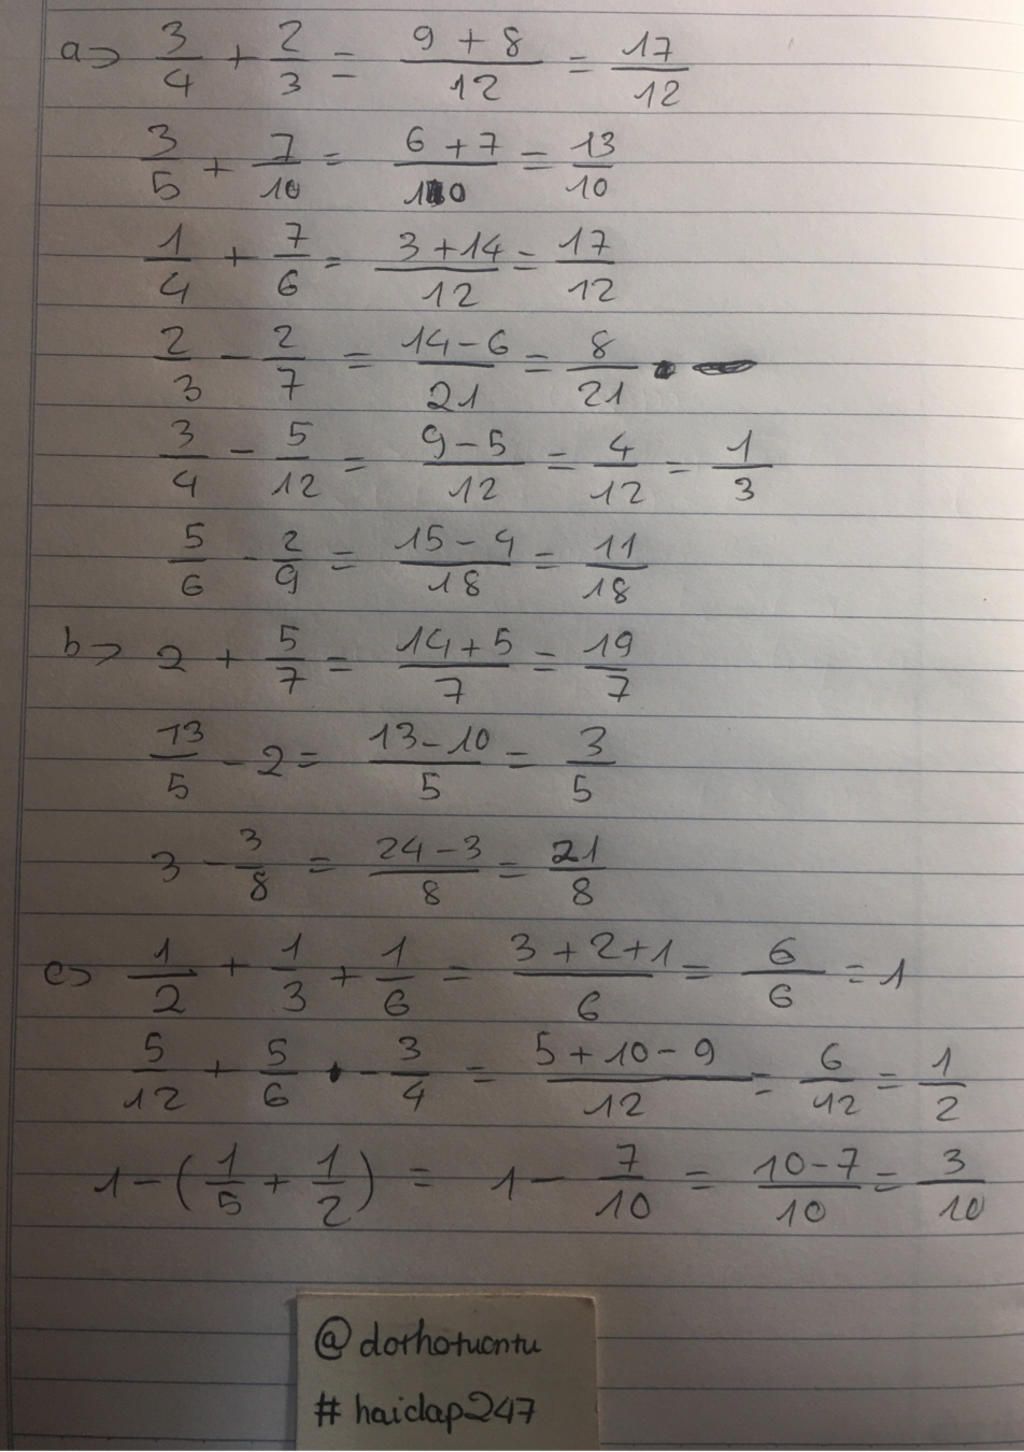 a> 3/4 + 2/3 = (9 + 8)/12 = 17/12
3/5 + 7/10 = (6 + 7)/10 = 13/10
1/4 + 7/6 = (3 + 14)/12 = 17/12
2/3 - 2/7 = (14 - 6)/21 = 8/21
3/4 - 5/12 = (9 - 5)/12 = 4/12 = 1/3
5/6 - 2/9 = (15 - 4)/18 = 11/18
b> 2 + 5/7 = (14 + 5)/7 = 19/7
13/5 - 2 = (13 - 10)/5 = 3/5
3 - 3/8 = (24 - 3)/8 = 21/8
c> 1/2 + 1/3 + 1/6 = (3 + 2 + 1)/6 = 6/6 = 1
5/12 + 5/6 - 3/4 = (5 + 10 - 9)/12 = 6/12 = 1/2
1 - (1/5 + 1/2) = 1 - 7/10 = (10 - 7)/10 = 3/10
@dothotuontu
#haidap247